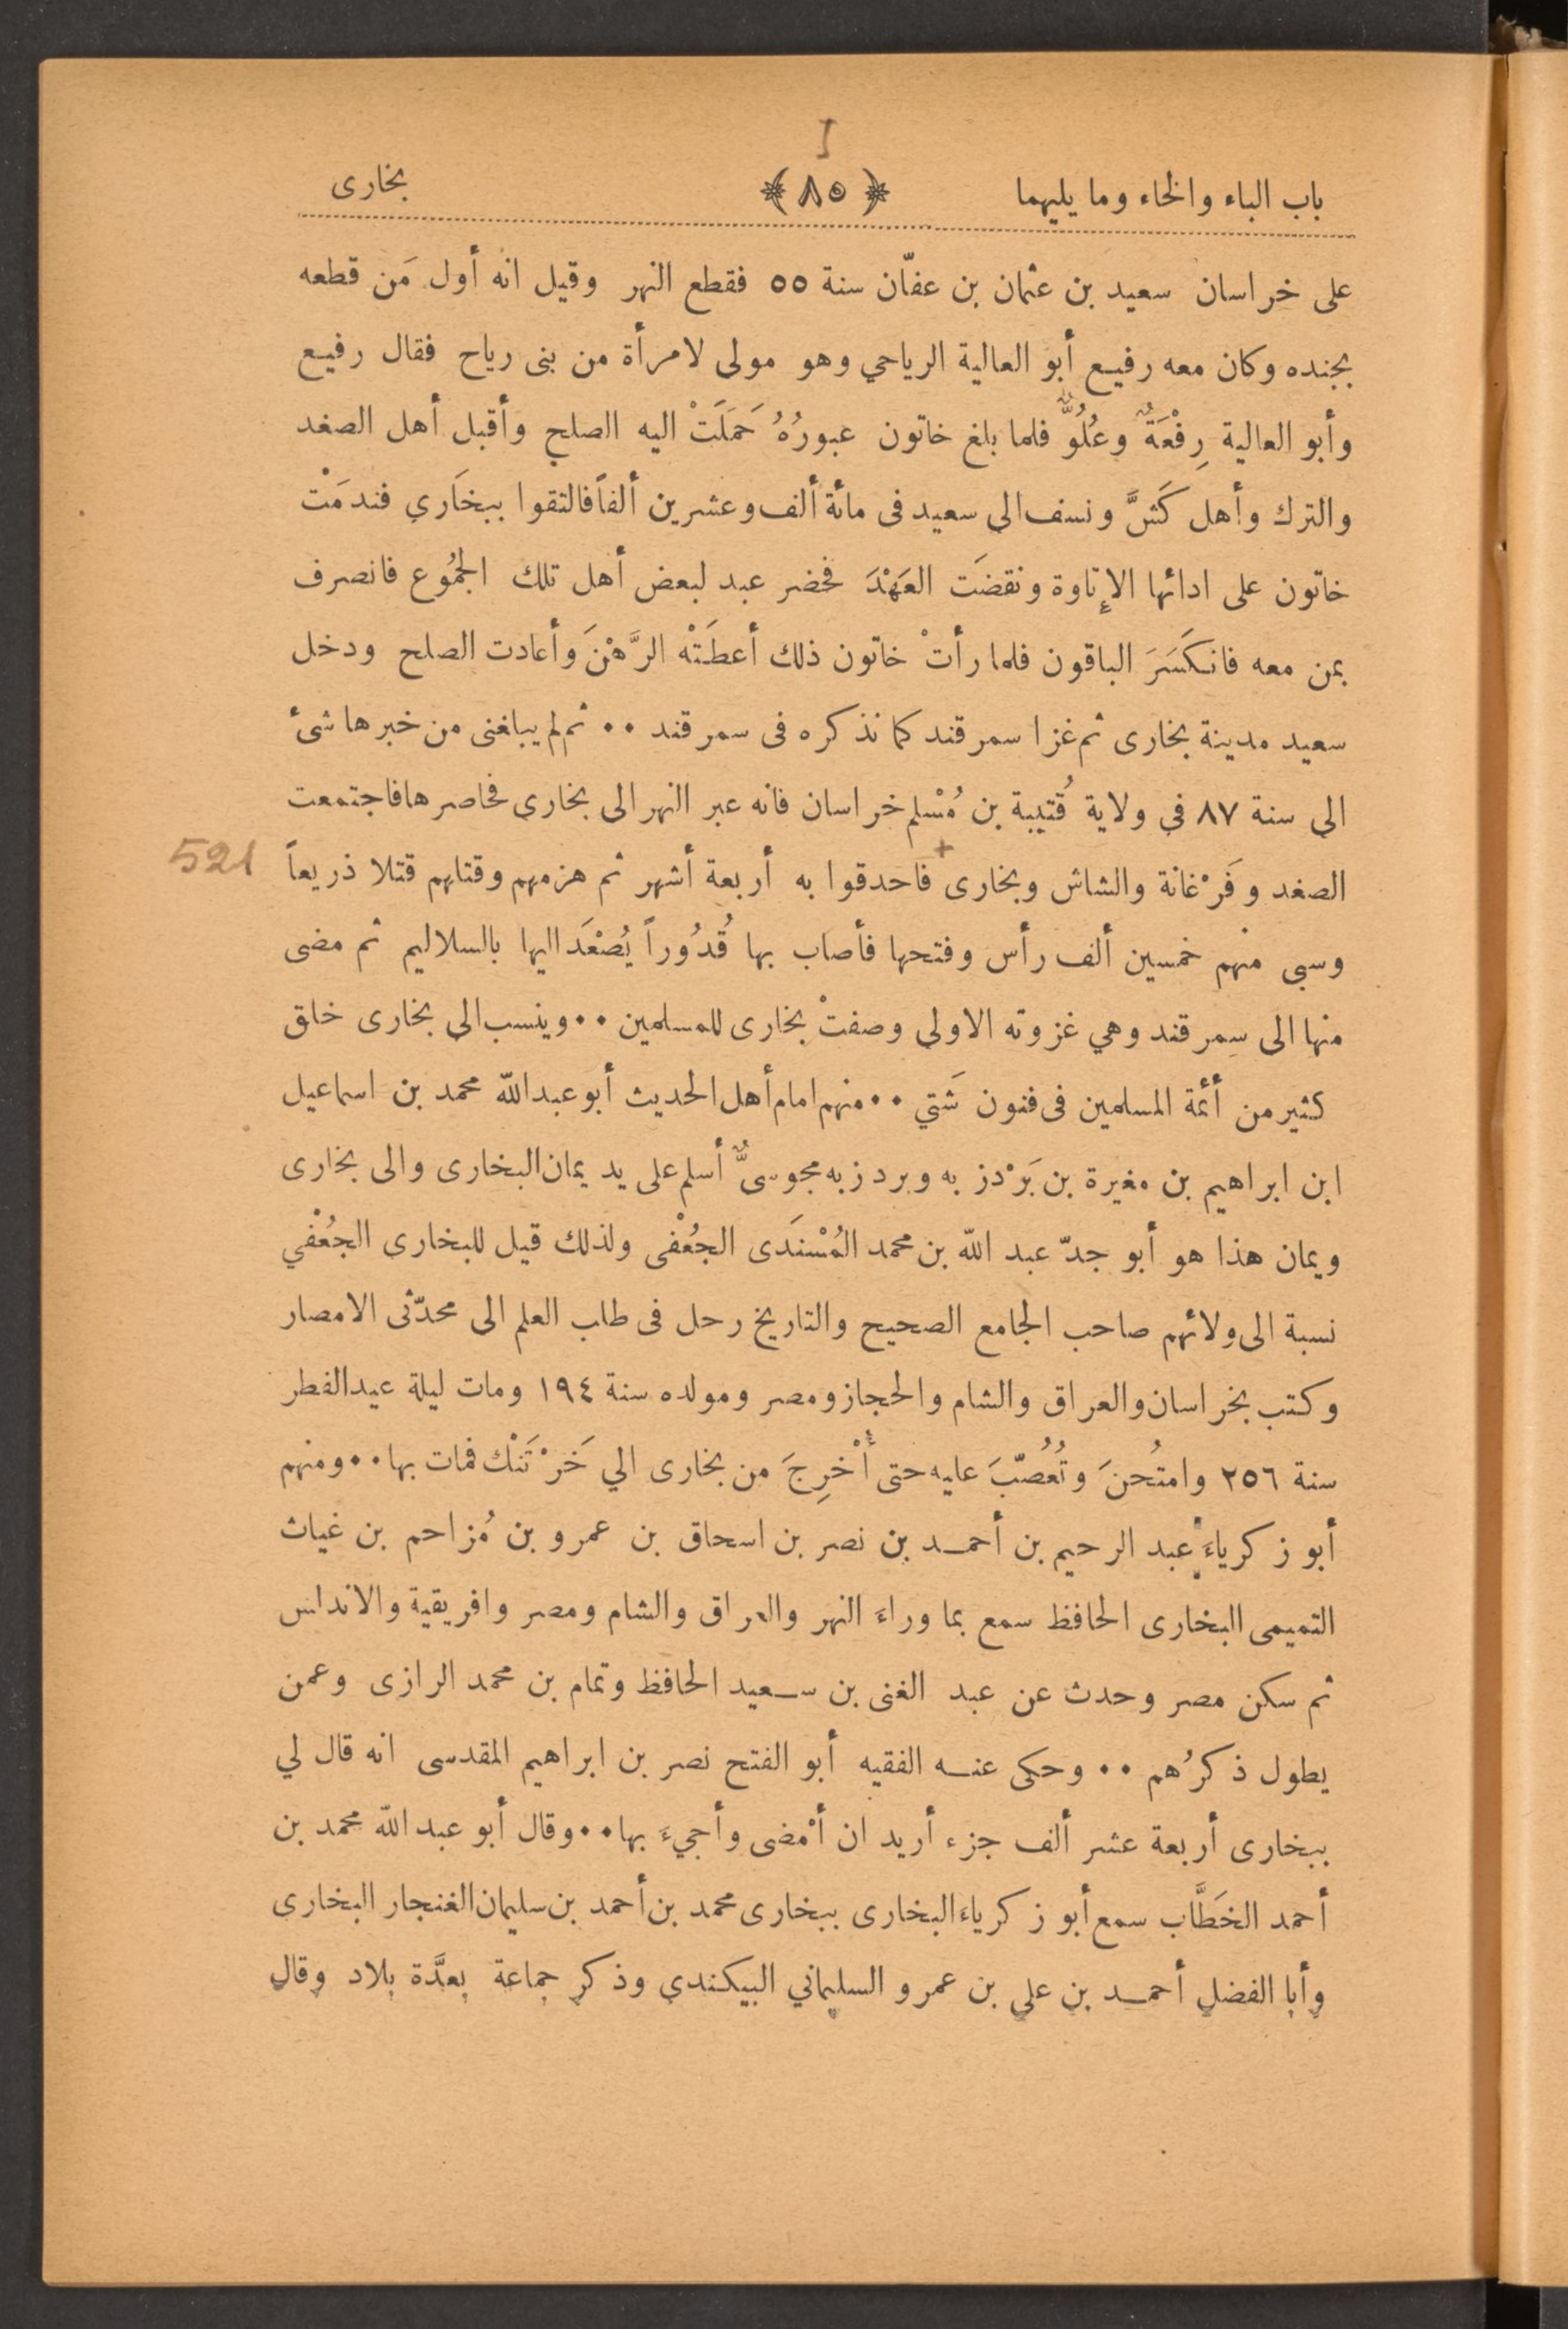 I
باب الباء والخاء وما يليهما ﴿ ٨٥ ﴾ بخارى
على خراسان سعيد بن عثمان بن عفّان سنة ٥٥ فقطع النهر وقيل انه أول مَن قطعه
بجنده وكان معه رفيع أبو العالية الرياحي وهو مولى لامرأة من بنى رياح فقال رفيع
وأبو العالية رِفْعَةٌ وعُلُوٌّ فلما بلغ خاتون عبورُهُ حَمَلَتْ اليه الصلح وأقبل أهل الصغد
والترك وأهل كَشَّ ونسف الى سعيد فى مائة ألف وعشرين ألفاً فالتقوا ببخَاري فندمَتْ
خاتون على ادائها الإتاوة ونقضَت العَهْدَ فحضر عبد لبعض أهل تلك الجمُوع فانصرف
بمن معه فانكَسَرَ الباقون فلما رأتْ خاتون ذلك أعطَتْه الرَّهْنَ وأعادت الصلح ودخل
سعيد مدينة بخارى ثم غزا سمرقند كما نذكره فى سمرقند ٠٠ ثم لم يبلغنى من خبرها شئ
الى سنة ٨٧ في ولاية قُتيبة بن مُسْلم خراسان فانه عبر النهر الى بخارى فحاصرها فاجتمعت
521 الصغد وفَرْغانة والشاش وبخارى + فاحدقوا به أربعة أشهر ثم هزمهم وقتلهم قتلا ذريعاً
وسبى منهم خمسين ألف رأس وفتحها فأصاب بها قُدُوراً يُصْعَد اليها بالسلاليم ثم مضى
منها الى سمرقند وهي غزوته الاولى وصفتْ بخارى للمسلمين ٠٠ وينسب الى بخارى خلق
كثير من أئمة المسلمين فى فنون شَتي ٠٠ منهم امام أهل الحديث أبو عبد الله محمد بن اسماعيل
ابن ابراهيم بن مغيرة بن بَرْدزبه وبردزبه مجوسىٌّ أسلم على يد يمان البخارى والى بخارى
ويمان هذا هو أبو جدّ عبد الله بن محمد المُسْنَدى الجُعْفى ولذلك قيل للبخارى الجُعْفي
نسبة الى ولائهم صاحب الجامع الصحيح والتاريخ رحل فى طلب العلم الى محدّثى الامصار
وكتب بخراسان والعراق والشام والحجاز ومصر ومولده سنة ١٩٤ ومات ليلة عيد الفطر
سنة ٢٥٦ وامتُحنَ وتُعُصّبَ عليه حتى أُخْرِجَ من بخارى الي خَرْتَنْك فمات بها ٠٠ ومنهم
أبو زكرياءَ عبد الرحيم بن أحمد بن نصر بن اسحاق بن عمرو بن مُزاحم بن غياث
التميمى البخارى الحافظ سمع بما وراءَ النهر والعراق والشام ومصر وافريقية والاندلس
ثم سكن مصر وحدث عن عبد الغنى بن سعيد الحافظ وتمام بن محمد الرازى وعمن
يطول ذكرُهم ٠٠ وحكى عنه الفقيه أبو الفتح نصر بن ابراهيم المقدسى انه قال لي
ببخارى أربعة عشر ألف جزء أريد ان أمْضى وأجيءَ بها ٠٠ وقال أبو عبد الله محمد بن
أحمد الخَطَّاب سمع أبو زكرياءَ البخارى ببخارى محمد بن أحمد بن سليمان الغنجار البخارى
وأبا الفضل أحمد بن علي بن عمرو السليماني البيكندي وذكر جماعة بعدَّة بلاد وقال